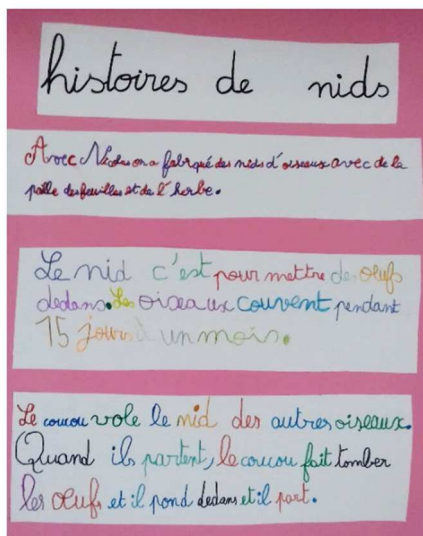 histoires de nids
Avec Nicolas on a fabriqué des nids d'oiseaux avec de la
paille des feuilles et de l'herbe.
Le nid c'est pour mettre des oeufs
dedans. Les oiseaux couvent pendant
15 jours à un mois.
Le coucou vole le nid des autres oiseaux.
Quand ils partent, le coucou fait tomber
les oeufs et il pond dedans et il part.